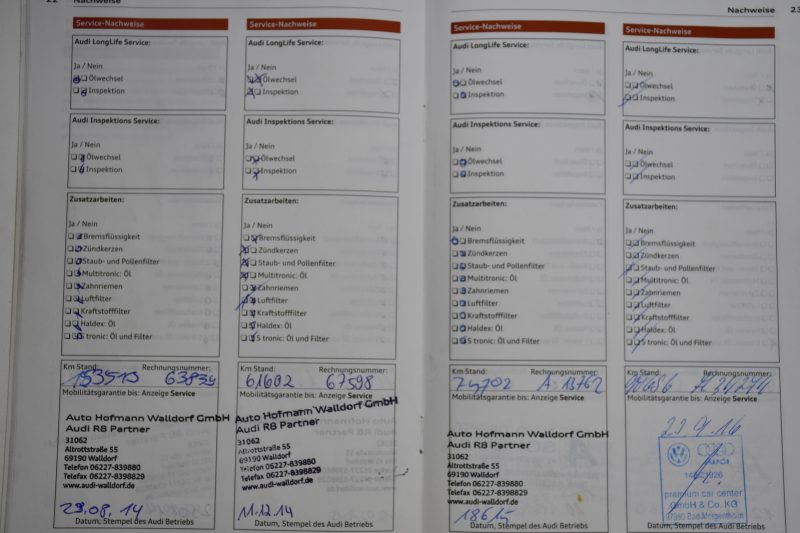 22 Nachweise
Service-Nachweise
Audi LongLife Service:
Ja / Nein
Ölwechsel
Inspektion
Audi Inspektions Service:
Ja / Nein
Ölwechsel
Inspektion
Zusatzarbeiten:
Ja / Nein
Bremsflüssigkeit
Zündkerzen
Staub- und Pollenfilter
Multitronic: Öl
Zahnriemen
Luftfilter
Kraftstofffilter
Haldex: Öl
S tronic: Öl und Filter
Km Stand: Rechnungsnummer:
Mobilitätsgarantie bis: Anzeige Service
Auto Hofmann Walldorf GmbH
Audi R8 Partner
31062
Altrottstraße 55
69190 Walldorf
Telefon 06227-839880
Telefax 06227-8398839
www.audi-walldorf.de
29.08.14
Datum, Stempel des Audi Betriebs
Service-Nachweise
Audi LongLife Service:
Ja / Nein
Ölwechsel
Inspektion
Audi Inspektions Service:
Ja / Nein
Ölwechsel
Inspektion
Zusatzarbeiten:
Ja / Nein
Bremsflüssigkeit
Zündkerzen
Staub- und Pollenfilter
Multitronic: Öl
Zahnriemen
Luftfilter
Kraftstofffilter
Haldex: Öl
S tronic: Öl und Filter
Km Stand: Rechnungsnummer:
61602 67598
Mobilitätsgarantie bis: Anzeige Service
Auto Hofmann Walldorf GmbH
Audi R8 Partner
31062
Altrottstraße 55
69190 Walldorf
Telefon 06227-839880
Telefax 06227-8398839
www.audi-walldorf.de
11.12.14
Datum, Stempel des Audi Betriebs
Nachweise 23
Service-Nachweise
Audi LongLife Service:
Ja / Nein
Ölwechsel
Inspektion
Audi Inspektions Service:
Ja / Nein
Ölwechsel
Inspektion
Zusatzarbeiten:
Ja / Nein
Bremsflüssigkeit
Zündkerzen
Staub- und Pollenfilter
Multitronic: Öl
Zahnriemen
Luftfilter
Kraftstofffilter
Haldex: Öl
S tronic: Öl und Filter
Km Stand: Rechnungsnummer:
Mobilitätsgarantie bis: Anzeige Service
Auto Hofmann Walldorf GmbH
Audi R8 Partner
31062
Altrottstraße 55
69190 Walldorf
Telefon 06227-839880
Telefax 06227-8398839
www.audi-walldorf.de
Datum, Stempel des Audi Betriebs
Service-Nachweise
Audi LongLife Service:
Ja / Nein
Ölwechsel
Inspektion
Audi Inspektions Service:
Ja / Nein
Ölwechsel
Inspektion
Zusatzarbeiten:
Ja / Nein
Bremsflüssigkeit
Zündkerzen
Staub- und Pollenfilter
Multitronic: Öl
Zahnriemen
Luftfilter
Kraftstofffilter
Haldex: Öl
S tronic: Öl und Filter
Km Stand: Rechnungsnummer:
Mobilitätsgarantie bis: Anzeige Service
premium car center
GmbH & Co. KG
97980 Bad Mergentheim
Datum, Stempel des Audi Betriebs